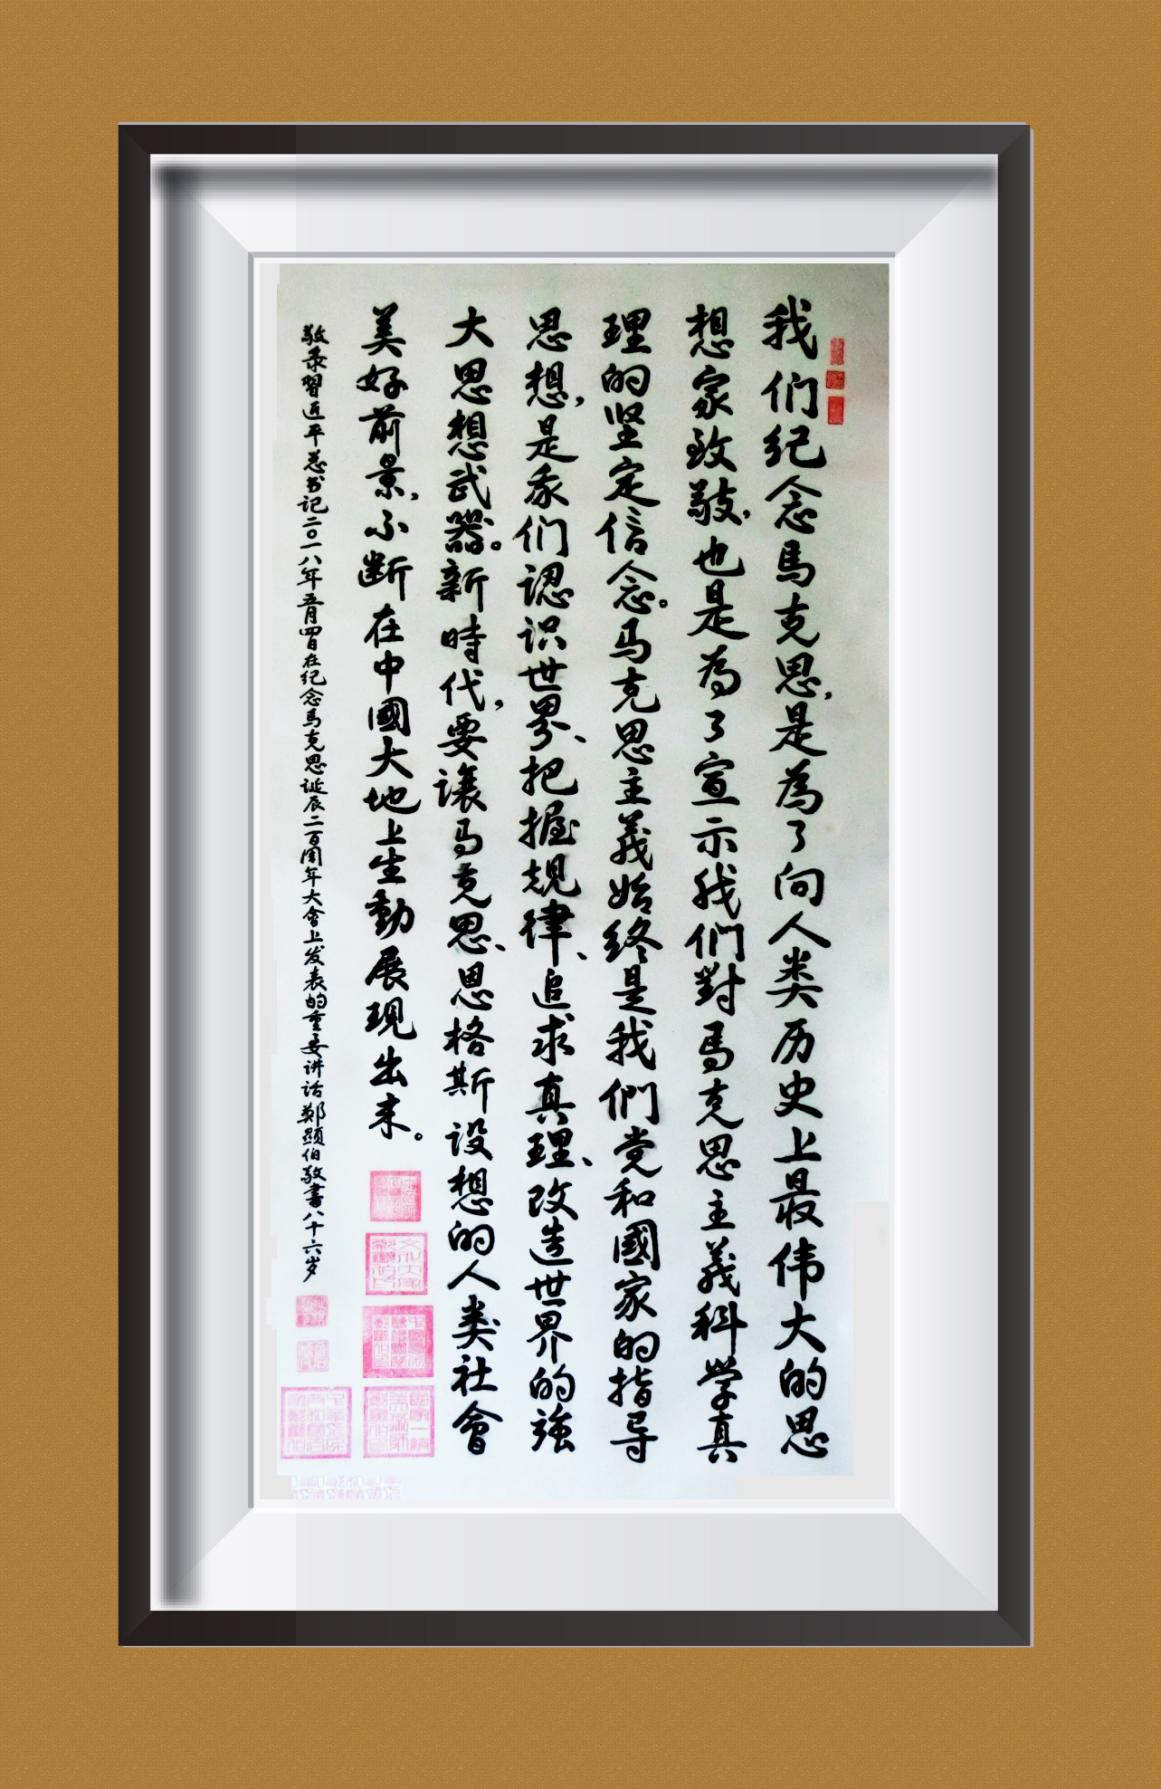 我们纪念馬克思，是為了向人类历史上最伟大的思
想家致敬，也是為了宣示我们對馬克思主義科学真
理的坚定信念。马克思主義始终是我們党和國家的指导
思想，是我们認识世界、把握規律、追求真理、改造世界的強
大思想武器。新時代，要讓马克思、恩格斯设想的人类社會
美好前景，不断在中國大地上生動展現出来。
敬录習近平总书记二〇一八年五月四日在纪念馬克思诞辰二百周年大會上发表的重要讲话鄭顯伯敬書八十六岁